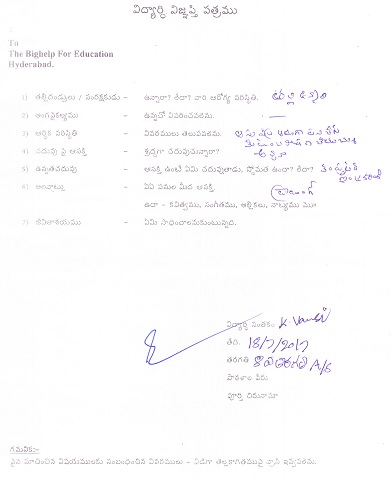 విద్యార్థి విజ్ఞప్తి పత్రము
To
The Bighelp For Education
Hyderabad.
1) తల్లిదండ్రులు / సంరక్షకుడు - ఉన్నారా? లేదా? వారి ఆరోగ్య పరిస్థితి.
2) అంగవైకల్యము - ఉన్నచో వివరించవలెను.
3) ఆర్థిక పరిస్థితి - వివరములు తెలుపవలెను.
4) చదువు పై ఆసక్తి - శ్రద్ధగా చదువుచున్నారా?
5) ఉన్నతచదువు - ఆసక్తి ఉంటే ఏమి చదువుతాడు, స్తోమత ఉందా? లేదా?
6) అలవాట్లు - ఏఏ పనుల మీద ఆసక్తి
ఉదా - కవిత్వము, సంగీతము, అల్లికలు, నాట్యము
7) జీవితాశయము - ఏమి సాధించాలనుకుంటున్నది.
విద్యార్థి సంతకం K. Vamsi
తేది. 18/7/2017
తరగతి A/S
పాఠశాల పేరు
పూర్తి చిరునామా
గమనిక:-
పైన సూచించిన విషయములకు సంబంధించిన వివరములు - విడిగా తెల్లకాగితముపై వ్రాసి ఇవ్వవలెను.